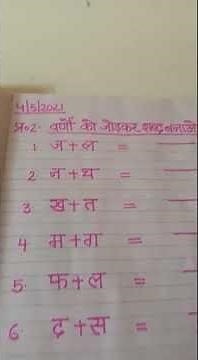 4/5/2021
प्र०2. वर्णों को जोड़कर शब्द बनाओ
1. ज + ल =
2 न + थ =
3 ख + त =
4 म + ग =
5. फ + ल =
6. द + स =